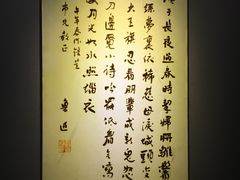 于長夜過春時挈婦將雛鬢
絲夢裏依稀慈母淚城頭變
大王旗忍看朋輩成新鬼怒
刀邊覓小詩吟罷低眉無寫
處月光如水照緇衣
午年春作錄呈
市兄教正
魯迅